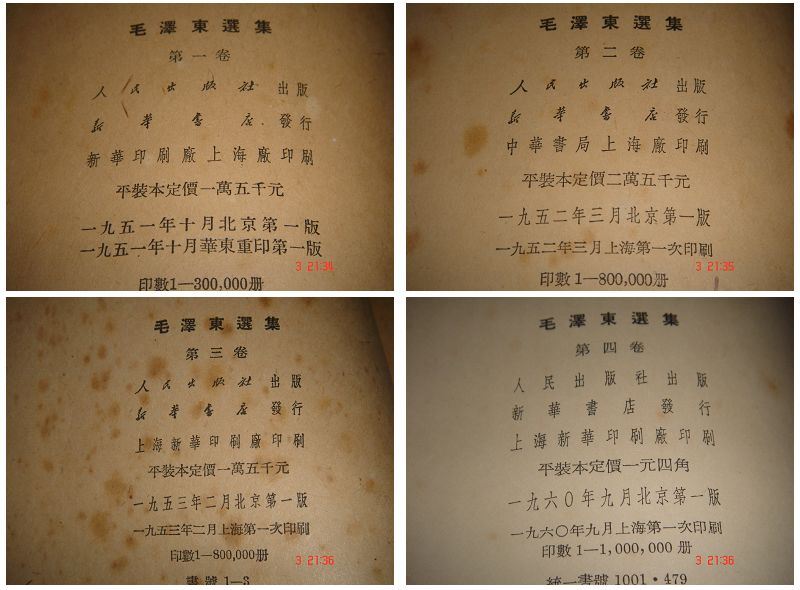 毛澤東選集
第一卷
人民出版社 出版
新華書店 發行
新華印刷廠上海廠印刷
平裝本定價一萬五千元
一九五一年十月北京第一版
一九五一年十月華東重印第一版
3 21:34
印數1—300,000册
毛澤東選集
第二卷
人民出版社 出版
新華書店 發行
中華書局上海廠印刷
平裝本定價二萬五千元
一九五二年三月北京第一版
一九五二年三月上海第一次印刷
3 21:35
印數1—800,000册
毛澤東選集
第三卷
人民出版社 出版
新華書店 發行
上海新華印刷廠印刷
平裝本定價一萬五千元
一九五三年二月北京第一版
一九五三年二月上海第一次印刷
印數1—800,000册
3 21:36
書號1—3
毛澤東選集
第四卷
人民出版社出版
新華書店發行
上海新華印刷廠印刷
平裝本定價一元四角
一九六〇年九月北京第一版
一九六〇年九月上海第一次印刷
印數1—1,000,000册
3 21:36
統一書號1001·479